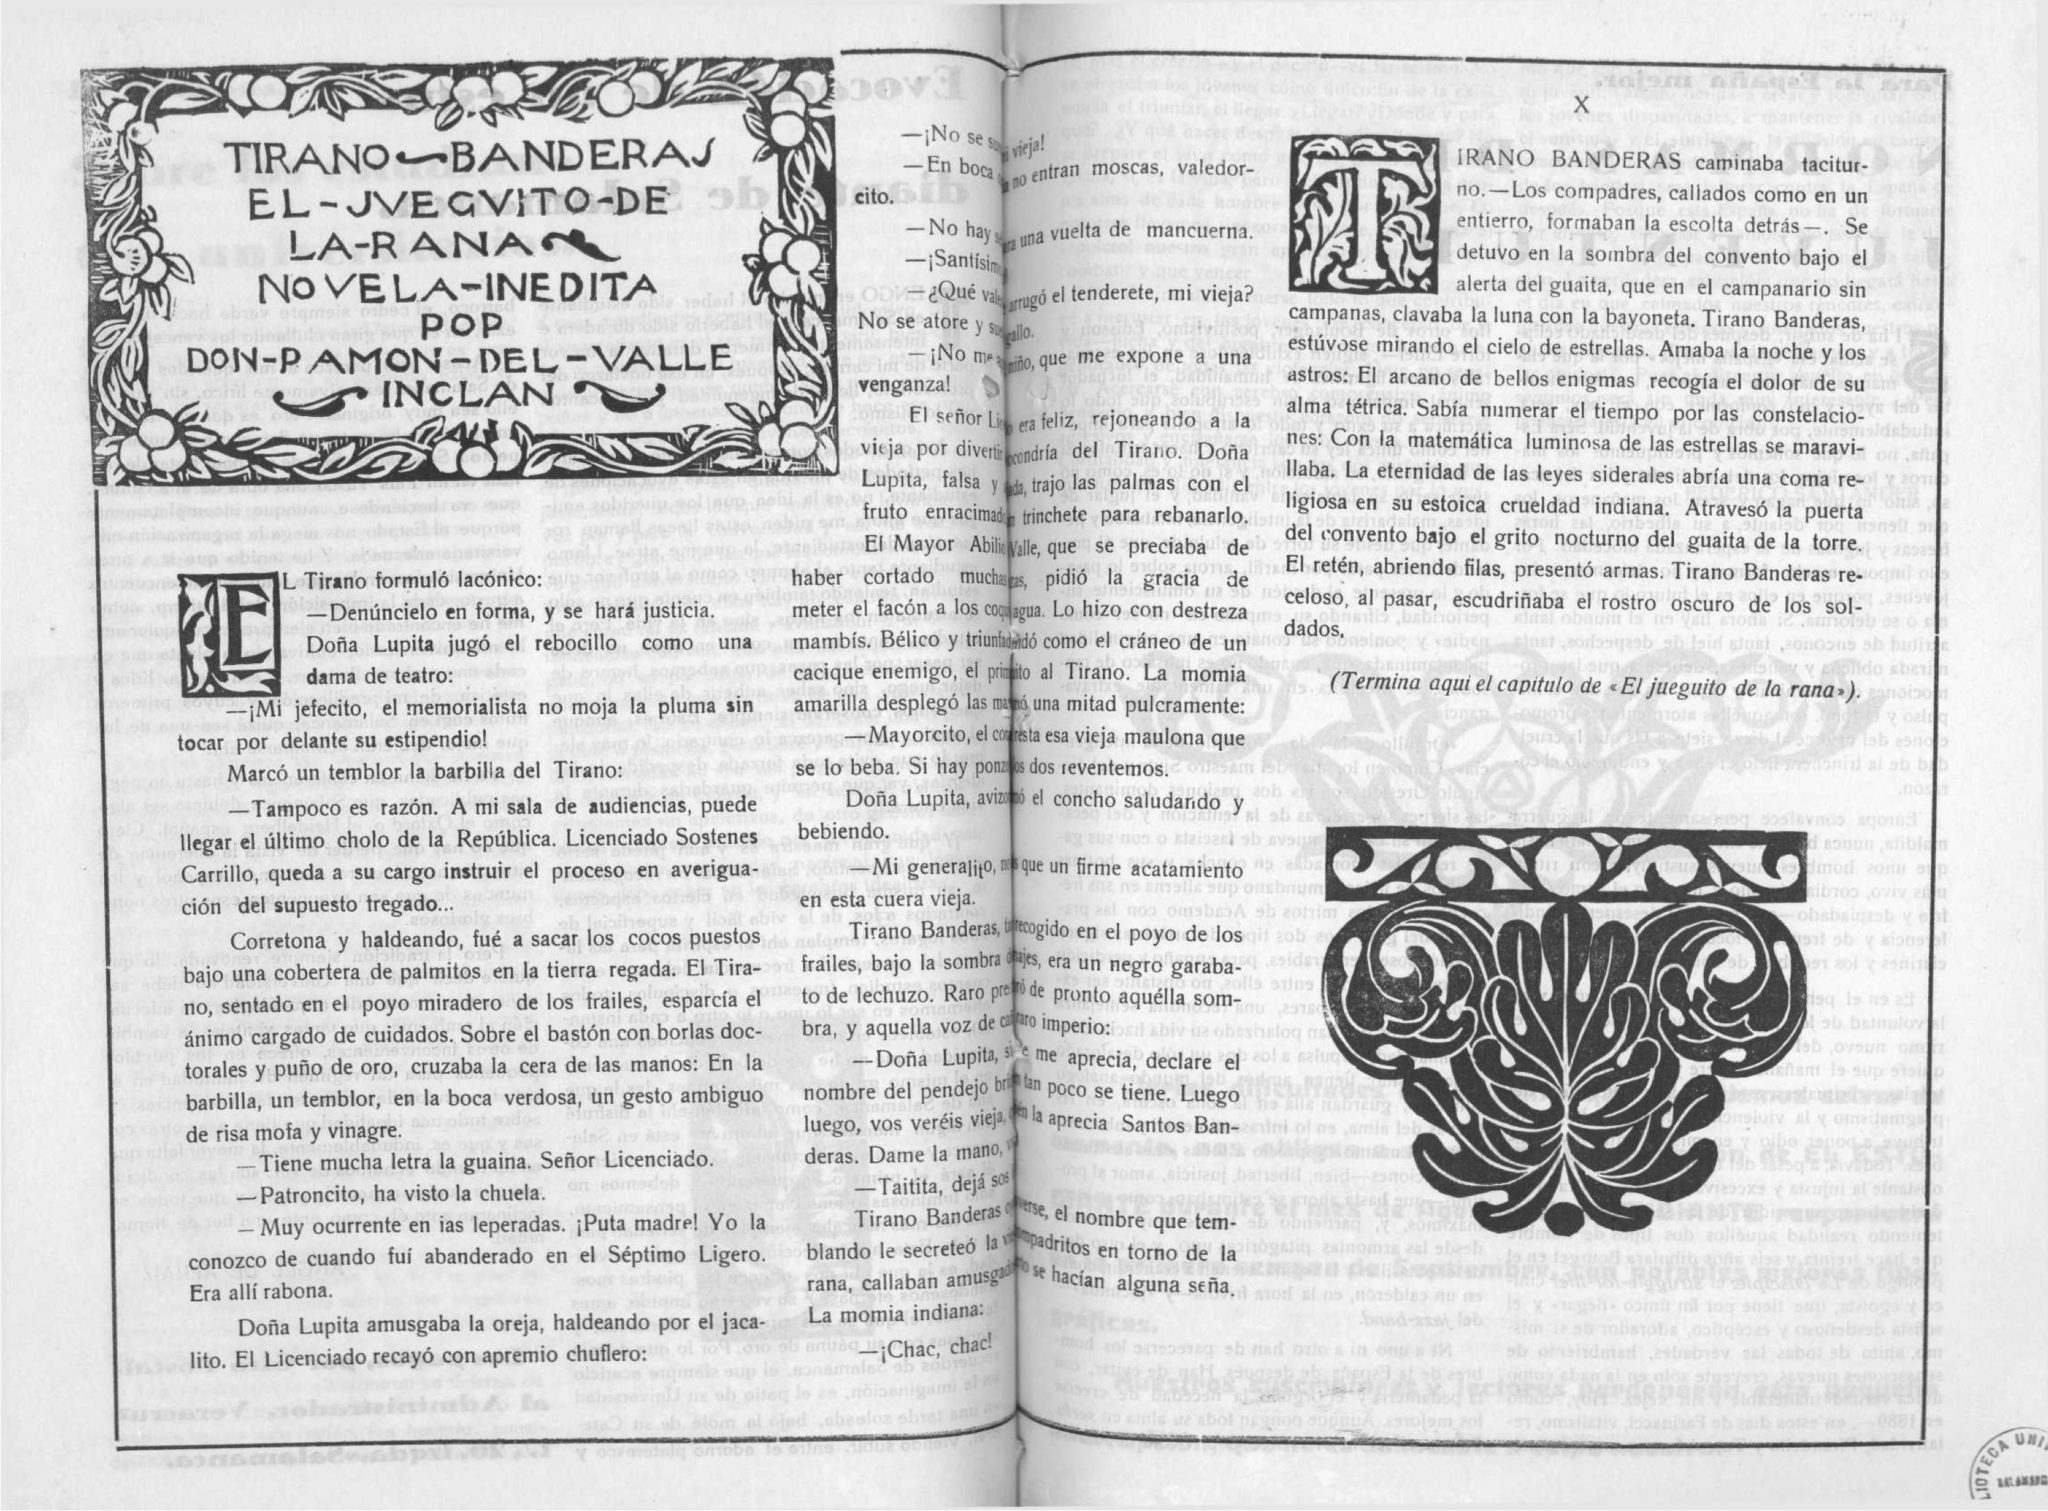 TIRANO BANDERAS
EL-JVEGVITO-DE
LA-RANA
NOVELA-INEDITA
POP
DON-PAMON-DEL-VALLE
INCLAN
EL Tirano formuló lacónico:
—Denúncielo en forma, y se hará justicia.
Doña Lupita jugó el rebocillo como una
dama de teatro:
—¡Mi jefecito, el memorialista no moja la pluma sin
tocar por delante su estipendio!
Marcó un temblor la barbilla del Tirano:
—Tampoco es razón. A mi sala de audiencias, puede
llegar el último cholo de la República. Licenciado Sostenes
Carrillo, queda a su cargo instruir el proceso en averigua-
ción del supuesto fregado...
Corretona y haldeando, fué a sacar los cocos puestos
bajo una cobertera de palmitos en la tierra regada. El Tira-
no, sentado en el poyo miradero de los frailes, esparcía el
ánimo cargado de cuidados. Sobre el bastón con borlas doc-
torales y puño de oro, cruzaba la cera de las manos: En la
barbilla, un temblor, en la boca verdosa, un gesto ambiguo
de risa mofa y vinagre.
—Tiene mucha letra la guaina. Señor Licenciado.
—Patroncito, ha visto la chuela.
—Muy ocurrente en ias leperadas. ¡Puta madre! Yo la
conozco de cuando fuí abanderado en el Séptimo Ligero.
Era allí rabona.
Doña Lupita amusgaba la oreja, haldeando por el jaca-
lito. El Licenciado recayó con apremio chuflero:
—¡No se vieja!
—En boca no entran moscas, valedor-
cito.
—No hay una vuelta de mancuerna.
—¡Santísim
—¿Qué arrugó el tenderete, mi vieja?
No se atore y
—¡No niño, que me expone a una
venganza!
El señor era feliz, rejoneando a la
vieja por divertir del Tirano. Doña
Lupita, falsa y trajo las palmas con el
fruto enracimado trinchete para rebanarlo.
El Mayor Abilio Valle, que se preciaba de
haber cortado muchas pidió la gracia de
meter el facón a los agua. Lo hizo con destreza
mambís. Bélico y como el cráneo de un
cacique enemigo, el al Tirano. La momia
amarilla desplegó las una mitad pulcramente:
—Mayorcito, el esa vieja maulona que
se lo beba. Si hay dos reventemos.
Doña Lupita, el concho saludando y
bebiendo.
—Mi generalito, que un firme acatamiento
en esta cuera vieja.
Tirano Banderas, recogido en el poyo de los
frailes, bajo la sombra era un negro garaba-
to de lechuzo. Raro de pronto aquélla som-
bra, y aquella voz de raro imperio:
—Doña Lupita, me aprecia, declare el
nombre del pendejo tan poco se tiene. Luego
luego, vos veréis vieja, la aprecia Santos Ban-
deras. Dame la mano,
—Taitita, dejá sos
Tirano Banderas el nombre que tem-
blando le secreteó la en torno de la
rana, callaban se hacían alguna seña.
La momia indiana:
—¡Chac, chac!
X
TIRANO BANDERAS caminaba tacitur-
no.—Los compadres, callados como en un
entierro, formaban la escolta detrás—. Se
detuvo en la sombra del convento bajo el
alerta del guaita, que en el campanario sin
campanas, clavaba la luna con la bayoneta. Tirano Banderas,
estúvose mirando el cielo de estrellas. Amaba la noche y los
astros: El arcano de bellos enigmas recogía el dolor de su
alma tétrica. Sabía numerar el tiempo por las constelacio-
nes: Con la matemática luminosa de las estrellas se maravi-
llaba. La eternidad de las leyes siderales abría una coma re-
ligiosa en su estoica crueldad indiana. Atravesó la puerta
del convento bajo el grito nocturno del guaita de la torre.
El retén, abriendo filas, presentó armas. Tirano Banderas re-
celoso, al pasar, escudriñaba el rostro oscuro de los sol-
dados.
(Termina aqui el capitulo de «El jueguito de la rana»).